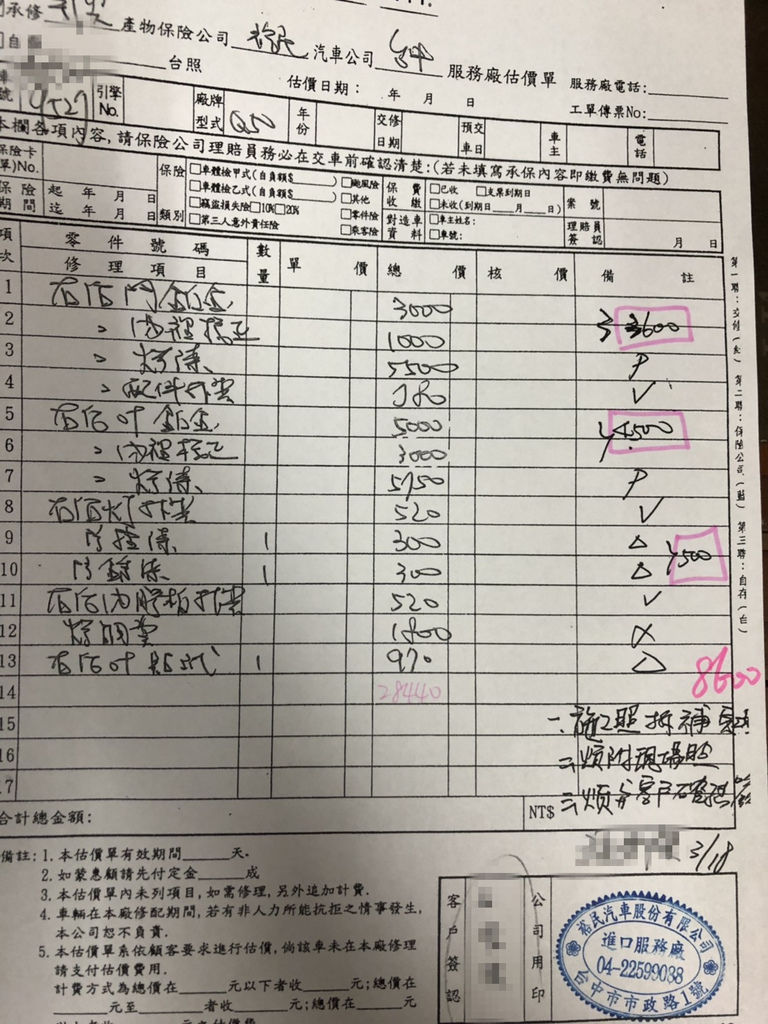 承修
產物保險公司 裕民 汽車公司 台中 服務廠估價單 服務廠電話:
台照 估價日期: 年 月 日 工單傳票No:
號 9527 引擎No. 廠牌型式 Q50 年份 交修日期 預交車日 車主 電話
本欄各項內容,請保險公司理賠員務必在交車前確認清楚:(若未填寫承保內容即繳費無問題)
保險卡(單)No. 保險類別 □車體險甲式(自負額$ ) □颱風險 保費收繳 □已收 □支票到期日 案號
□車體險乙式(自負額$ ) □其他 □未收(到期日 月 日)
保險期間 起 年 月 日 □竊盜損失險□10%□20% □零件險 對造車資料 □車主姓名: 理賠員簽認
迄 年 月 日 □第三人意外責任險 □乘客險 □車號: 月 日
項次 零件號碼 修理項目 數量 單價 總價 核價 備註
1 右后門鈑金 3000
2 〃 內裡校正 1000 3600
3 〃 烤漆 5500 P
4 〃 配件拆裝 V
5 右后叶鈑金 5000 4500
6 〃 內裡校正 3000
7 〃 烤漆 5750 P
8 右后灯拆裝 520 V
9 1 300 △ 500
10 1 300 △
11 右后內膠板拆裝 520 V
12 1800 X
13 右后叶 1 970 △
8600
14 28440
15 一:施工照拆補
16 二:煩附現場照
17 三:煩
合計總金額: NT$
3/18
備註:1.本估價單有效期間 天.
2.如蒙惠顧請先付定金 成
3.本估價單內未列項目,如需修理,另外追加計費.
4.車輛在本廠修配期間,若有非人力所能抗拒之情事發生,
本公司恕不負責.
5.本估價單系依顧客要求進行估價,倘該車未在本廠修理
請支付估價費用.
計費方式為總價在 元以下者收 元;總價在
元至 者收 元;總價在 元
客戶簽認
公司用印
裕民汽車股份有限公司
進口服務廠
04-22599088
台中市市政路1號
第一聯:交付(紅) 第二聯:保險公司(藍) 第三聯:自存(白)